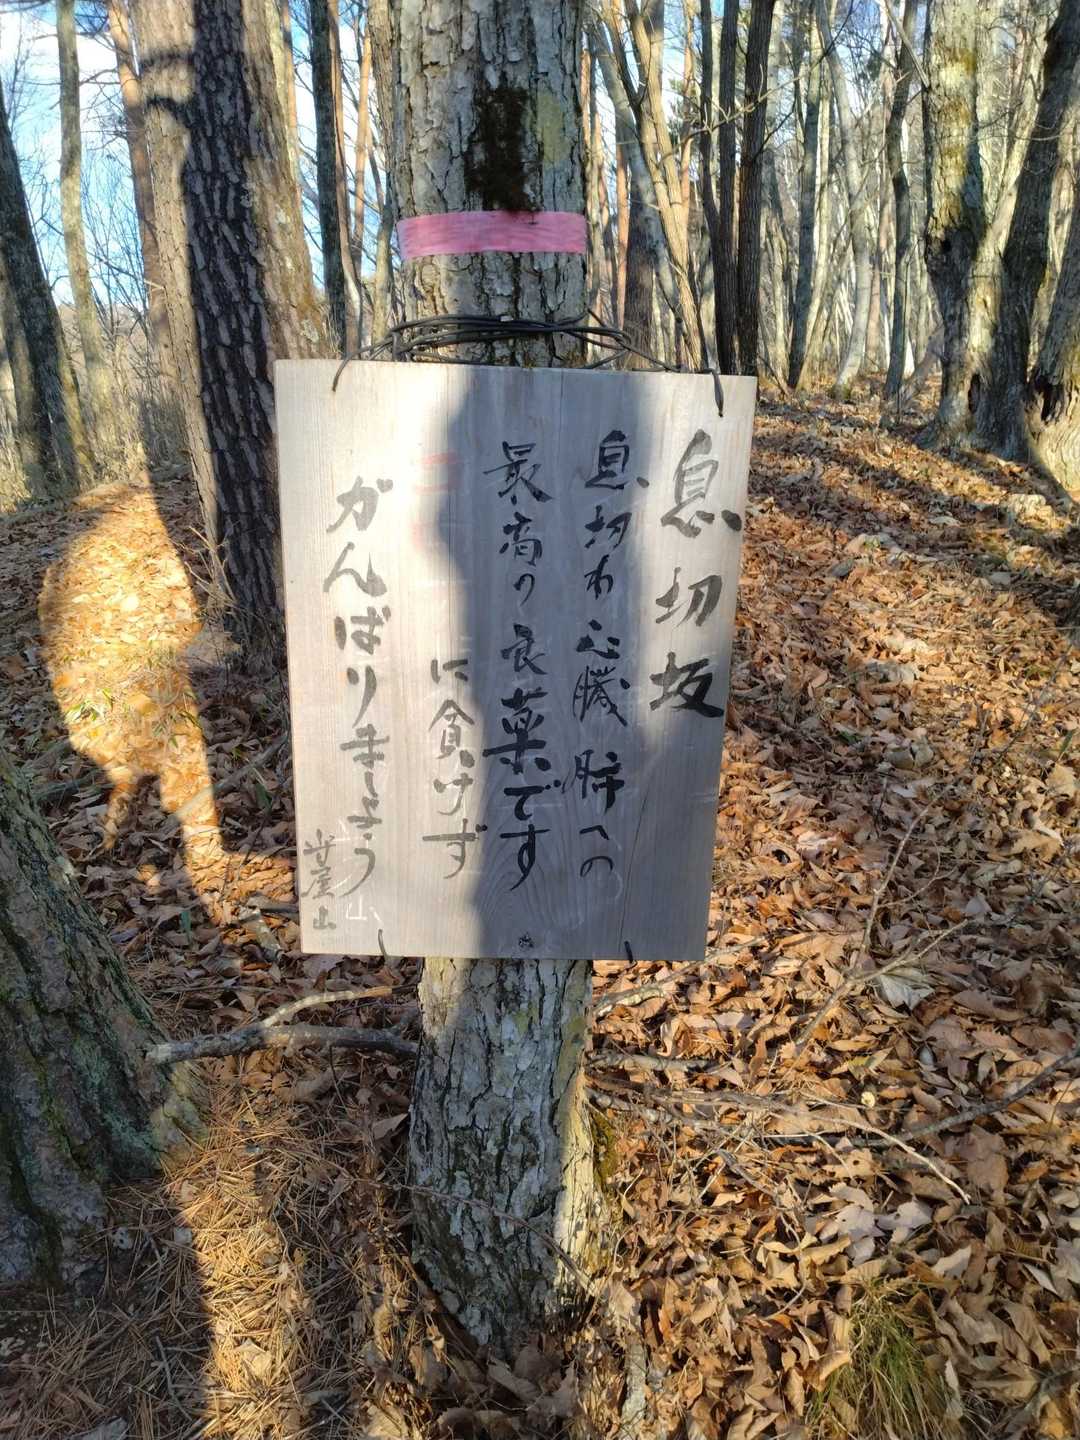 息切坂
息切れ心臓肺への
最高の良薬です
に負けず
がんばりましょう